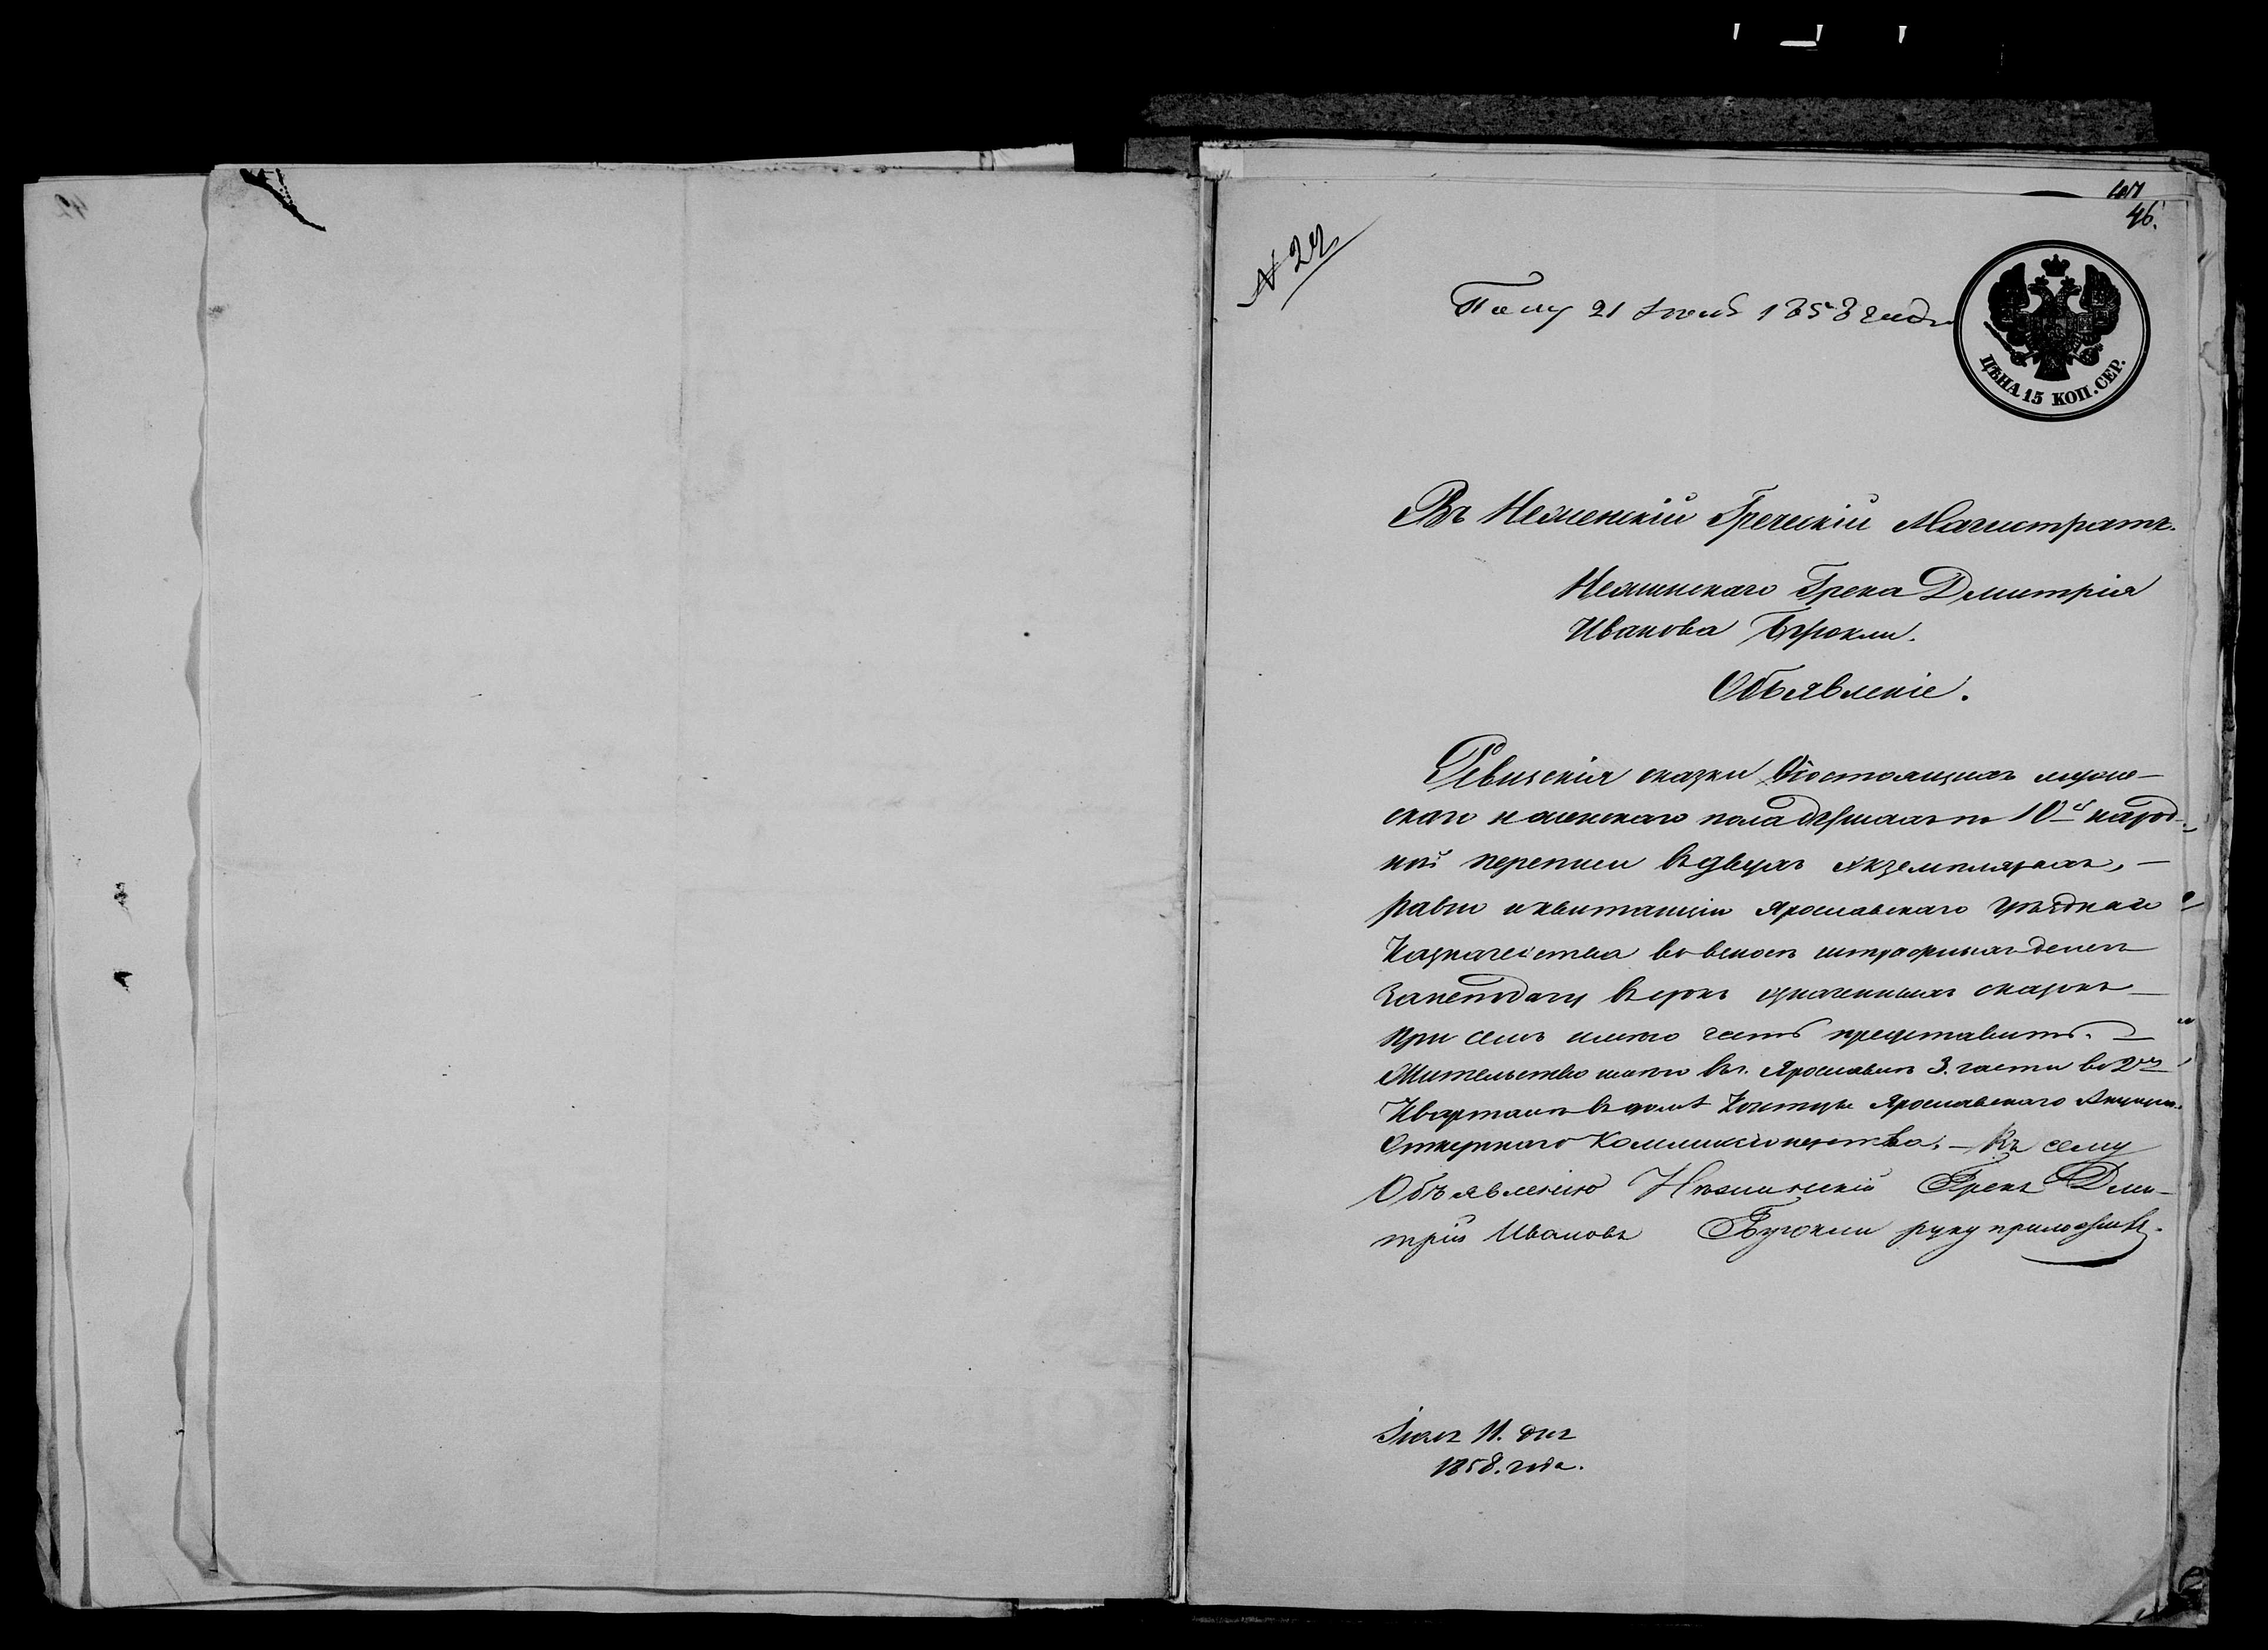 46.
N 24
Полу 21 Іюля 1858 года
ЦѢНА 15 КОП. СЕР.
Въ Неженскій Греческій Магистратъ.
Нежинскаго Грека Дмитрія
Иванова Бурокли.
Объявленіе.
Ревизскія сказки о состоящихъ мужс-
скаго и женскаго пола душахъ по 10й народ-
ной переписи въ двухъ экземплярахъ, —
равно и квитанцію Ярославскаго уѣзднаго
Казначейства во взносѣ штрафныхъ денегъ
за неподачу въ срокъ означенныхъ сказокъ —
при семъ имѣю честь представить. —
Жительство имѣю въ г. Ярославлѣ 3. части во 2мъ
Кварталѣ въ домѣ Конторы Ярославскаго Акцизно-
Откупнаго Коммисіонерства. — Къ сему
Объявленію Нѣжинскій Грекъ Дми-
трій Ивановъ Бурокли руку приложилъ.
Іюля 11. дня
1858. года.